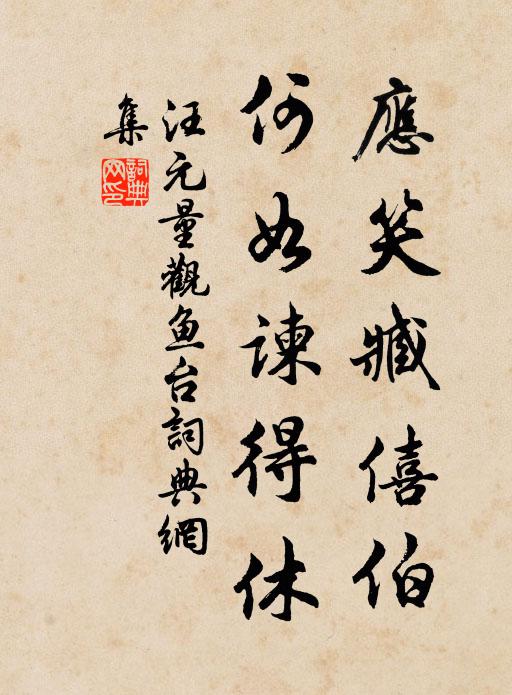 應笑臧僖伯
何如諫得休
汪元量觀鱼台詞典網
集
詞典网印